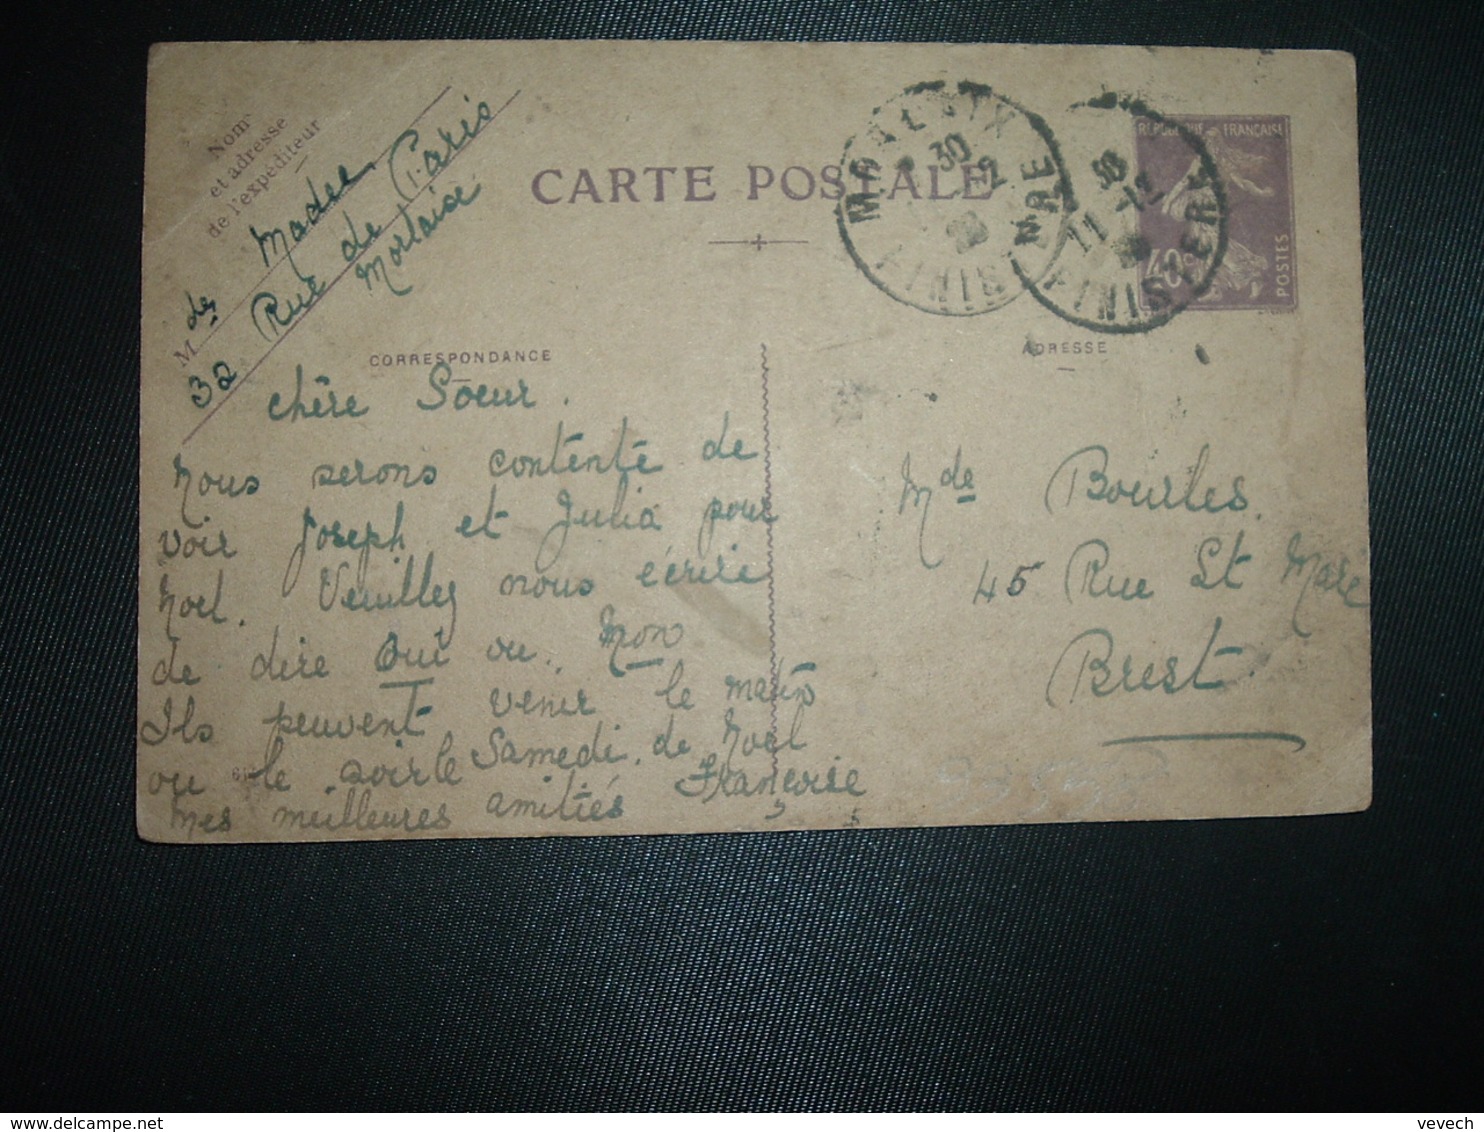 Nom
et adresse
de l'expéditeur
M des Madec
32 Rue de Paris
Morlaix
CARTE POSTALE
MORLAIX
FINISTERE
REPUBLIQUE FRANÇAISE
40c
POSTES
CORRESPONDANCE
ADRESSE
Chère Soeur.
Nous serons contente de
voir Joseph et Julia pour
Noel. Veuillez nous écrire
de dire Oui ou Non
Ils peuvent venir le matin
ou le soir le Samedi de Noel
mes meilleures amitiés Françoise
Mde Bourles.
45 Rue St Marc
Brest
vevech